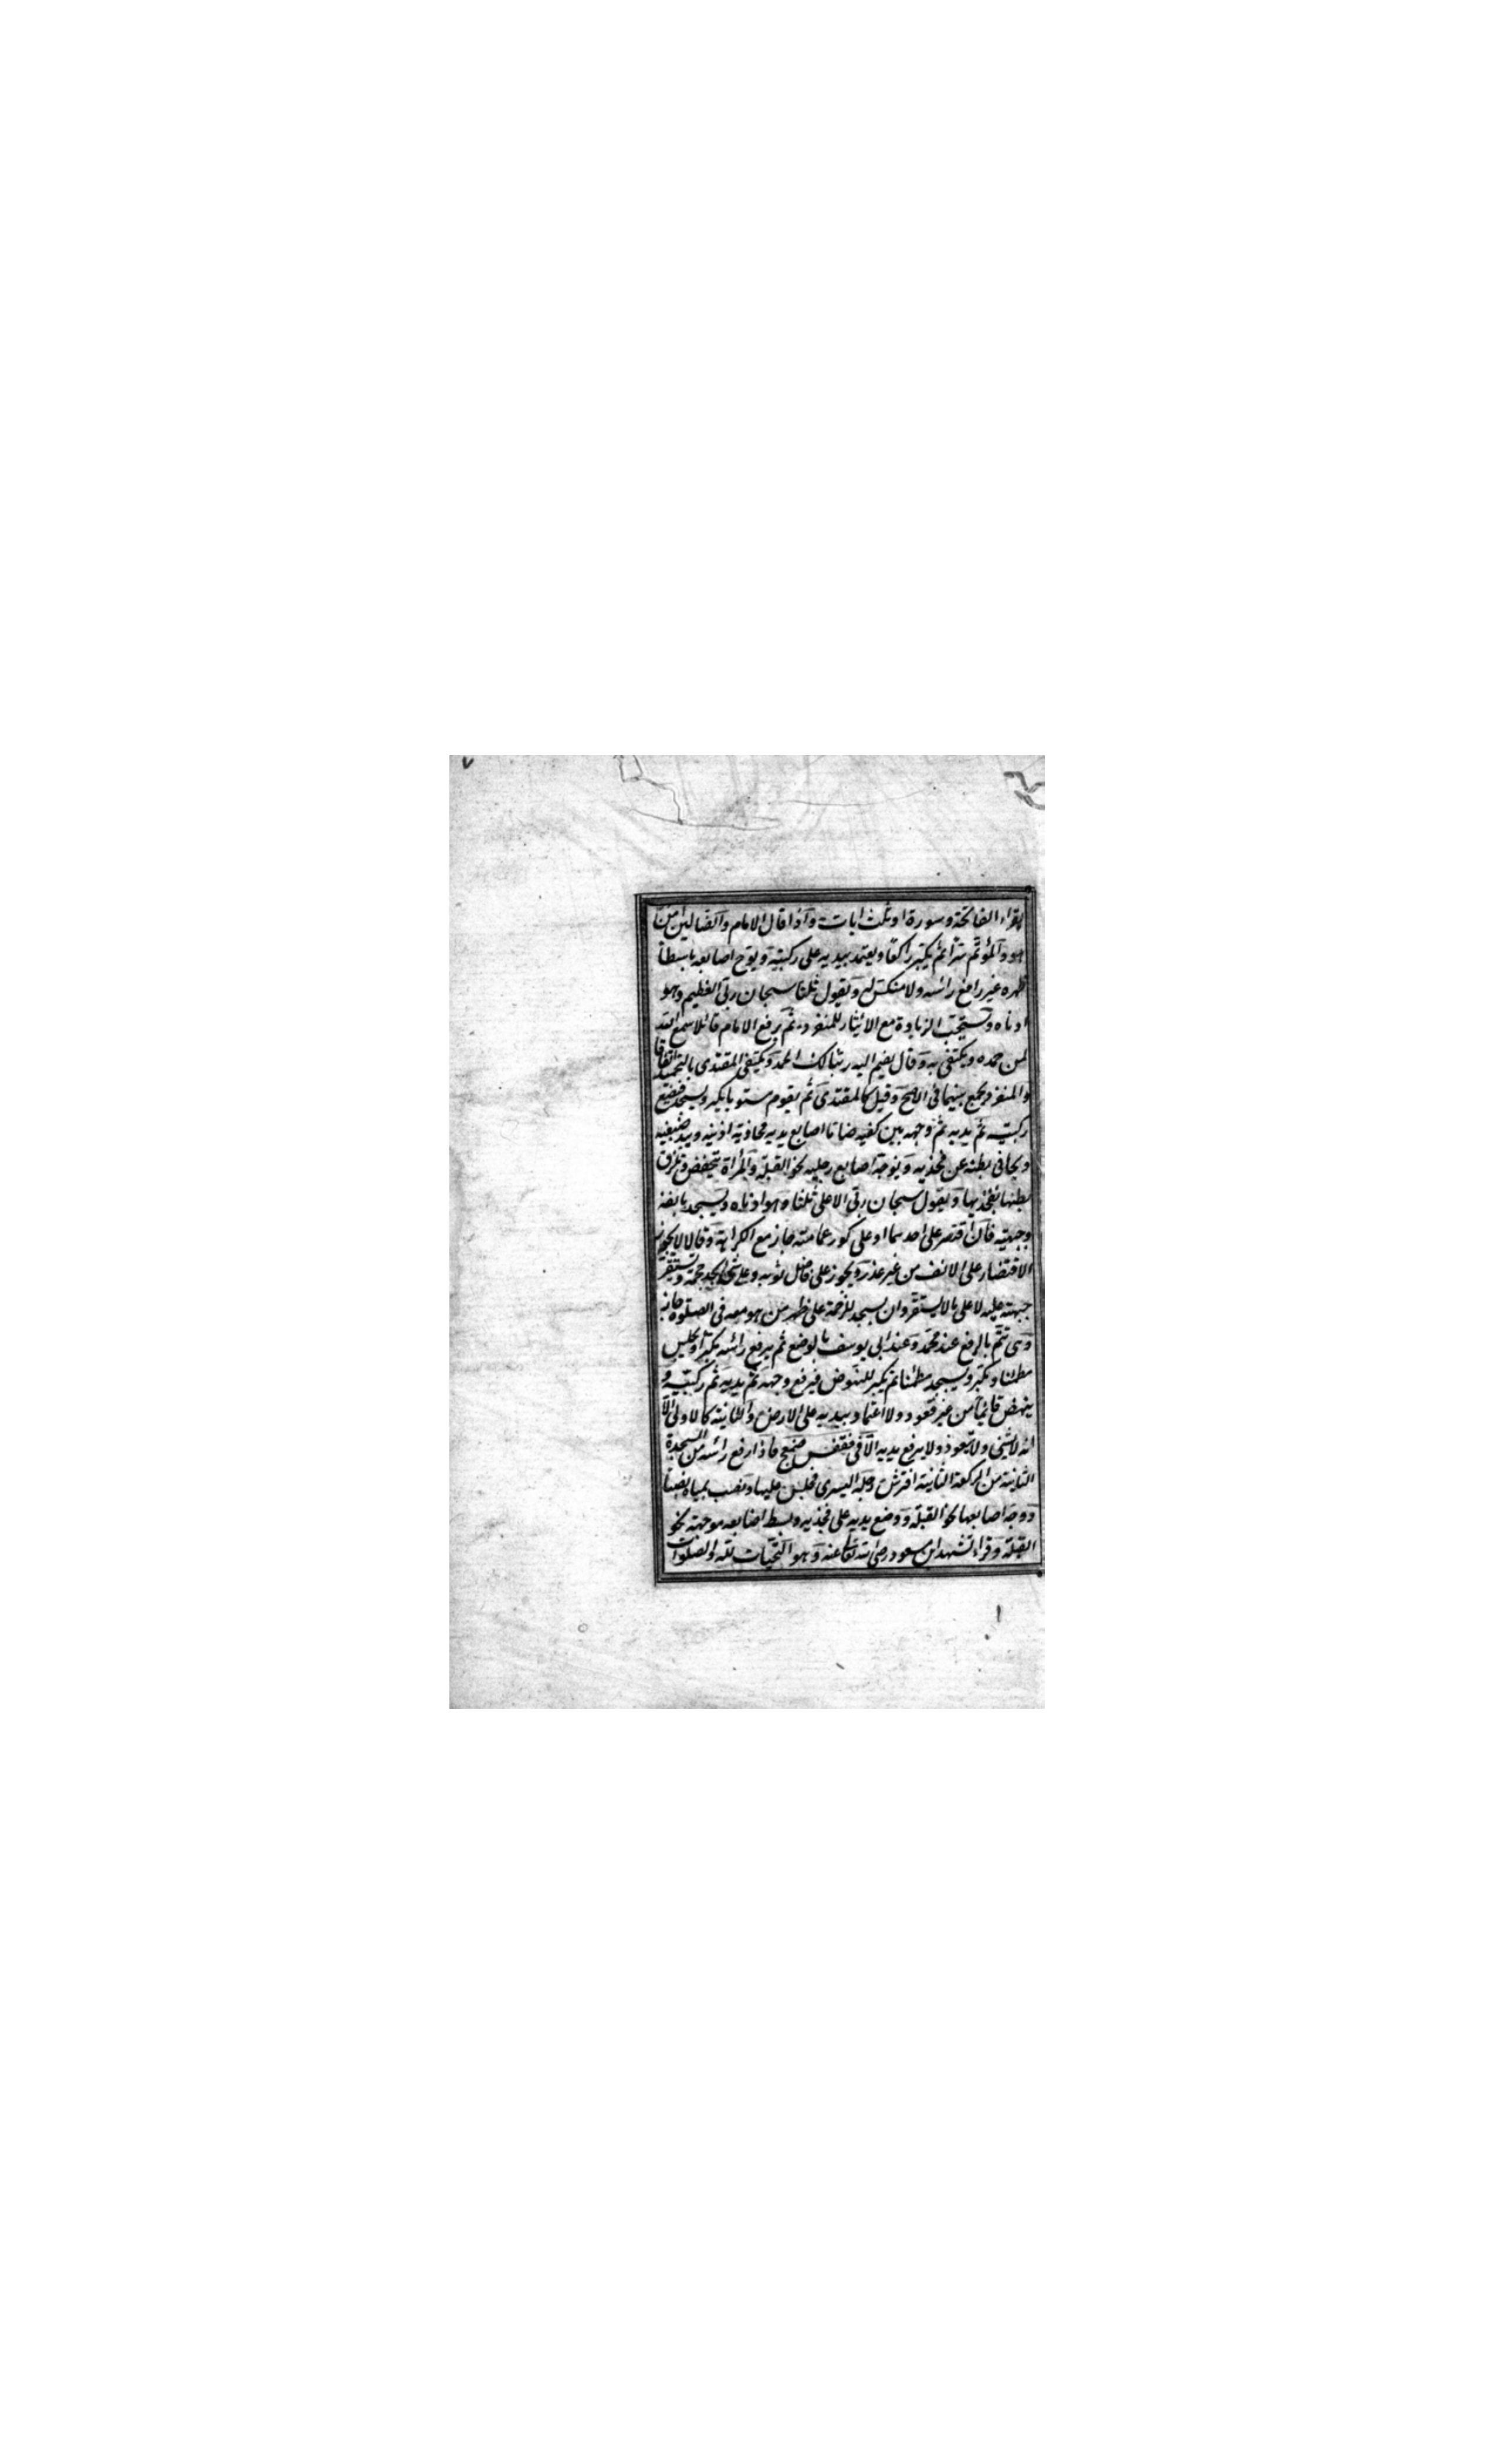 يقراء الفاتحة وسورة او ثلث ايات واذا قال الامام ولا الضالين امن
هو والمؤتم سرا ثم يكبر راكعا ويعتمد بيديه على ركبتيه ويفرج اصابعه باسطا
ظهره غير رافع رأسه ولا منكس له ويقول ثلثا سبحان ربى العظيم وهو
ادناه وتستحب الزيادة مع الايثار للمنفرد ثم يرفع الامام قائلا سمع الله
لمن حمده ويكتفى به وقالا يضم اليه ربنا لك الحمد ويكتفى المقتدى بالتحميد اتفاقا
والمنفرد يجمع بينهما فى الاصح وقيل كالمقتدى ثم يقوم مستويا يكبر ويسجد فيضع
ركبتيه ثم يديه ثم وجهه بين كفيه ضاما اصابع يديه محاذية اذنيه ويبد ضبعيه
ويجافى بطنه عن فخذيه ويوجه اصابع رجليه نحو القبلة والمرأة تنخفض وتلزق
بطنها بفخذيها ويقول سبحان ربى الاعلى ثلثا وهو ادناه ويسجد بانفه
وجبهته فان اقتصر على احدهما او على كور عمامته جاز مع الكراهة وقالا لا يجوز
الاقتصار على الانف من غير عذر ويجوز على فاضل ثوبه وعلى شئ يجد حجمه وتستقر
جبهته عليه لا على ما لا يستقر وان سجد للزحمة على ظهر من هو معه فى الصلوة جاز
وهى تتم بالرفع عند محمد وعند ابى يوسف بالوضع ثم يرفع رأسه مكبرا ويجلس
مطمئنا ويكبر ويسجد مطمئنا ثم يكبر للنهوض فيرفع وجهه ثم يديه ثم ركبتيه و
ينهض قائما من غير قعود ولا اعتماد بيديه على الارض والثانية كالاولى الا
انه لا يثنى ولا يتعوذ ولا يرفع يديه الا فى فقعس صمعج فاذا رفع رأسه من السجدة
الثانية من الركعة الثانية افترش رجله اليسرى فجلس عليها ونصب يمناه نصبا
ووجه اصابعها نحو القبلة ووضع يديه على فخذيه وبسط اصابعه موجهة نحو
القبلة وقراء تشهد ابن مسعود رضى الله تعا عنه وهو التحيات لله والصلوات